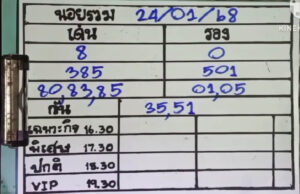 นอยรวม 24/01/68
เด่น รอง
8 0
385 501
80,83,85 01,05
กัน 35,51
เฉพาะกิจ 16.30
พิเศษ 17.30
ปกติ 18.30
VIP 19.30